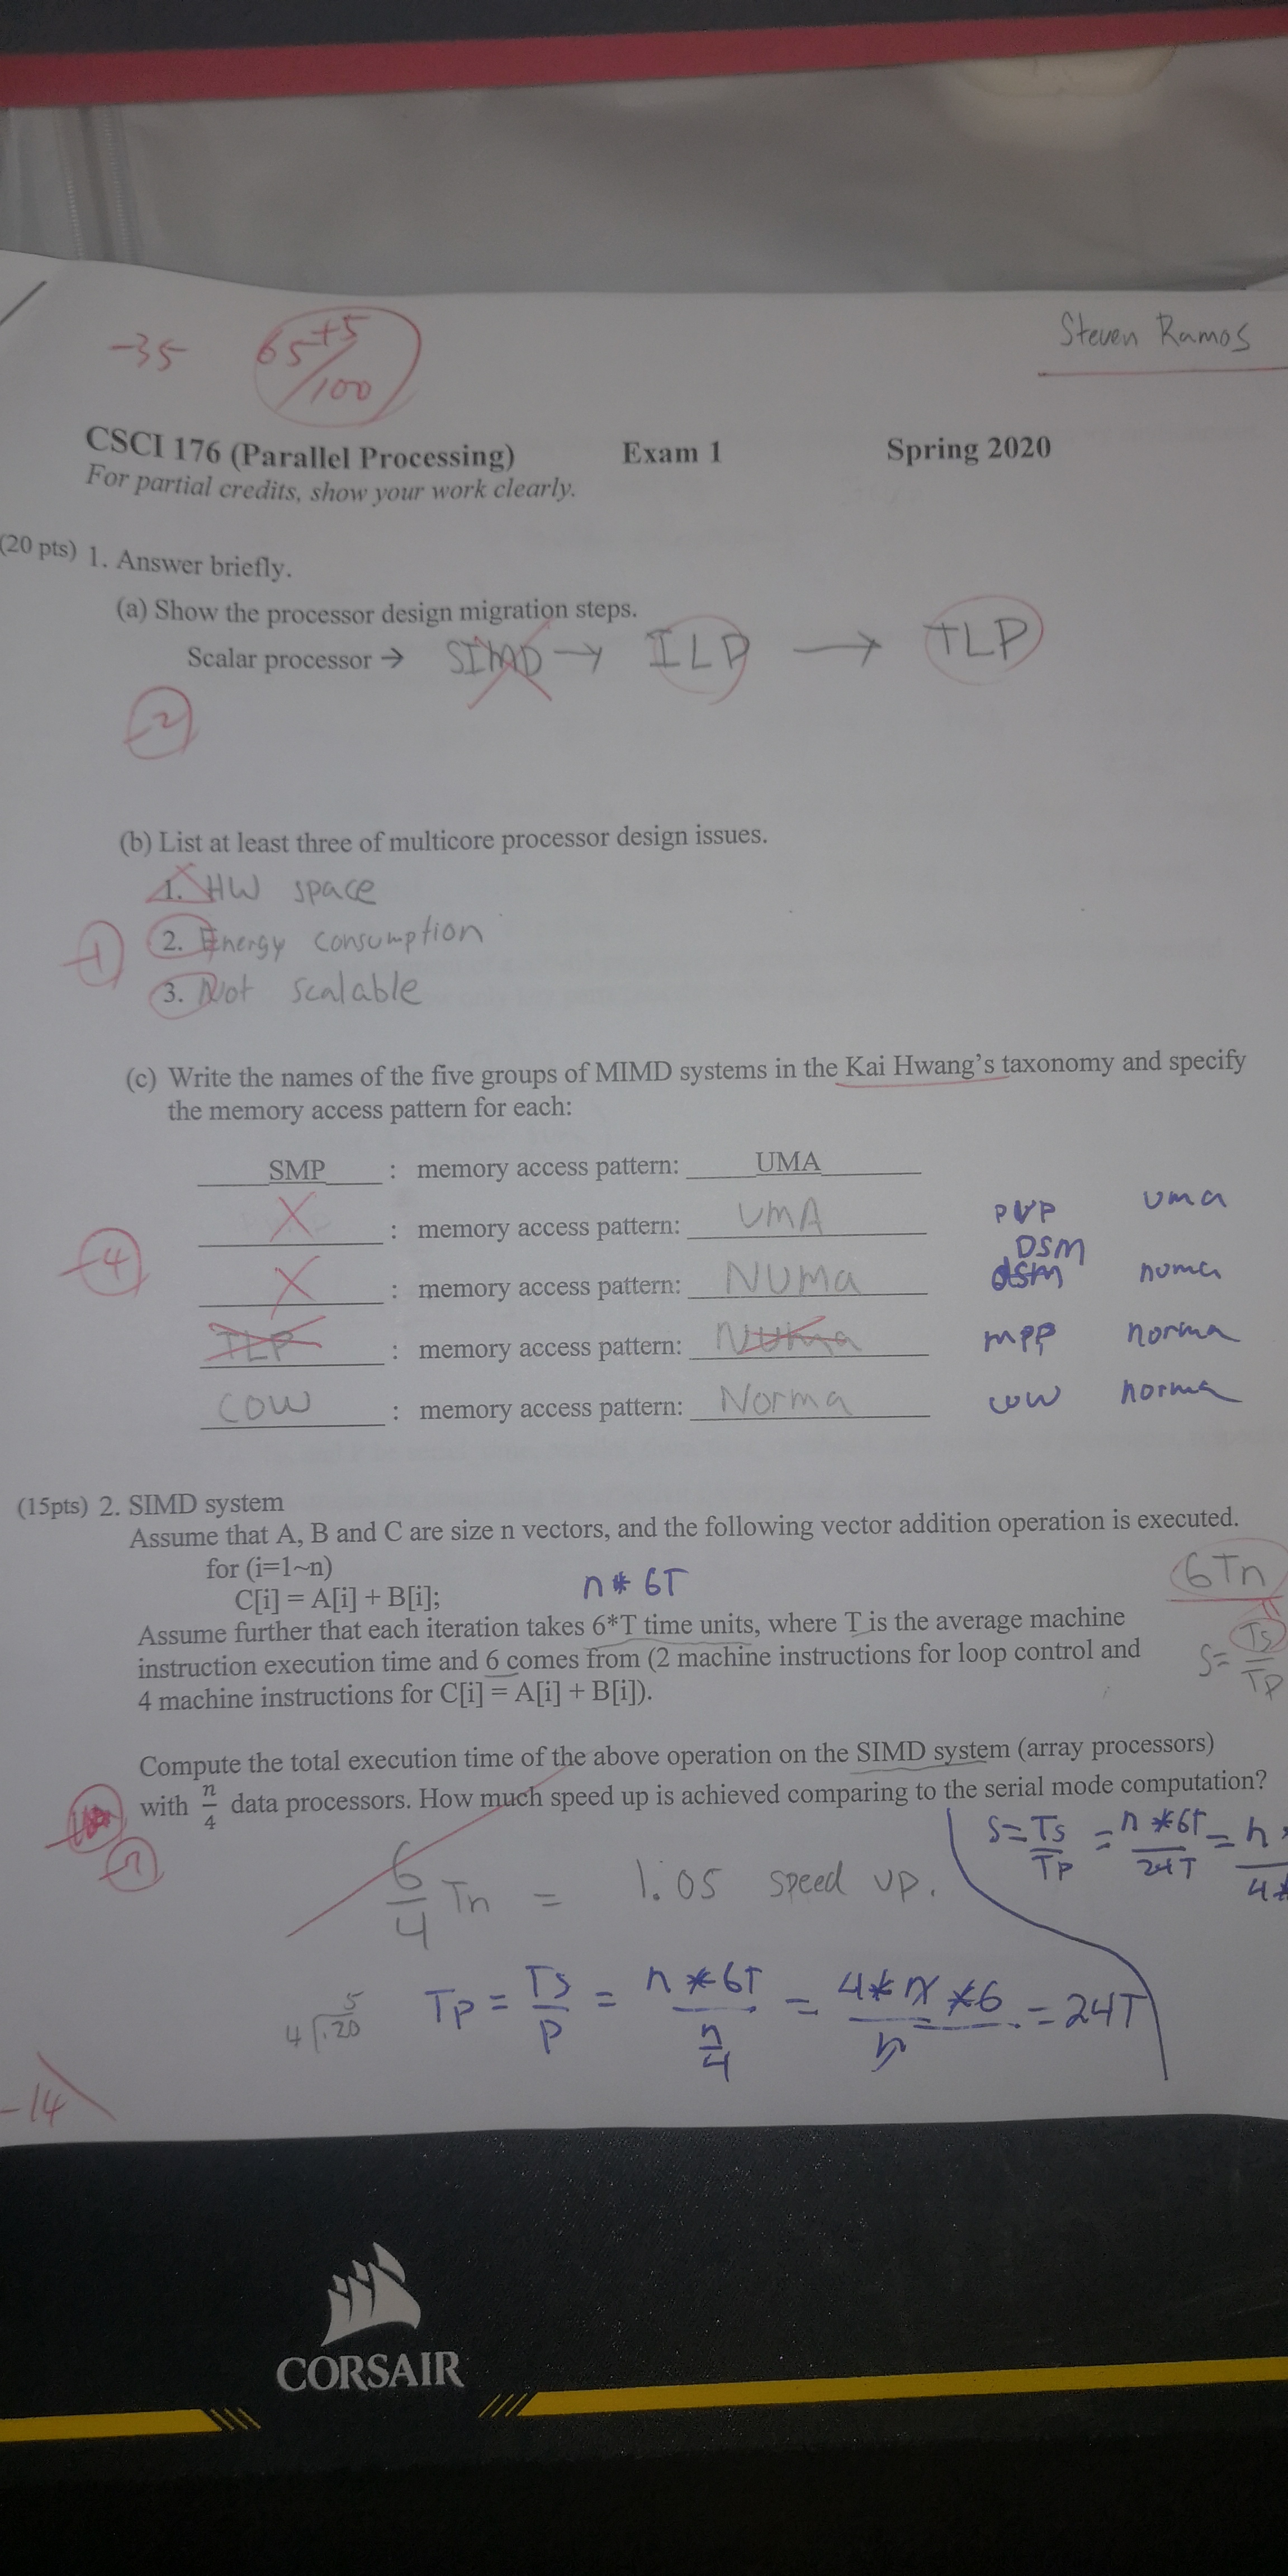 Steven Ramos
-35 65+5/100
CSCI 176 (Parallel Processing) Exam 1 Spring 2020
For partial credits, show your work clearly.
(20 pts) 1. Answer briefly.
(a) Show the processor design migration steps.
Scalar processor → SIMD → ILP → TLP
-2
(b) List at least three of multicore processor design issues.
1. HW space
2. Energy consumption
-1
3. Not scalable
(c) Write the names of the five groups of MIMD systems in the Kai Hwang's taxonomy and specify
the memory access pattern for each:
SMP : memory access pattern: UMA
X : memory access pattern: UMA PVP uma
-4
DSM
X : memory access pattern: NUMa dSM numa
ILP : memory access pattern: NUma mpp norma
COW : memory access pattern: Norma cow norma
(15pts) 2. SIMD system
Assume that A, B and C are size n vectors, and the following vector addition operation is executed.
for (i=1~n)
C[i] = A[i] + B[i]; n * 6T 6Tn
Assume further that each iteration takes 6*T time units, where T is the average machine
instruction execution time and 6 comes from (2 machine instructions for loop control and
4 machine instructions for C[i] = A[i] + B[i]).
S= Ts/Tp
Compute the total execution time of the above operation on the SIMD system (array processors)
with n/4 data processors. How much speed up is achieved comparing to the serial mode computation?
-7
S= Ts/Tp = n*6T/24T = n
6/4 Tn = 1.05 speed up.
Tp = Ts/P = n*6T / n/4 = 4*n*6/n = 24T
4 20 5
-14
CORSAIR